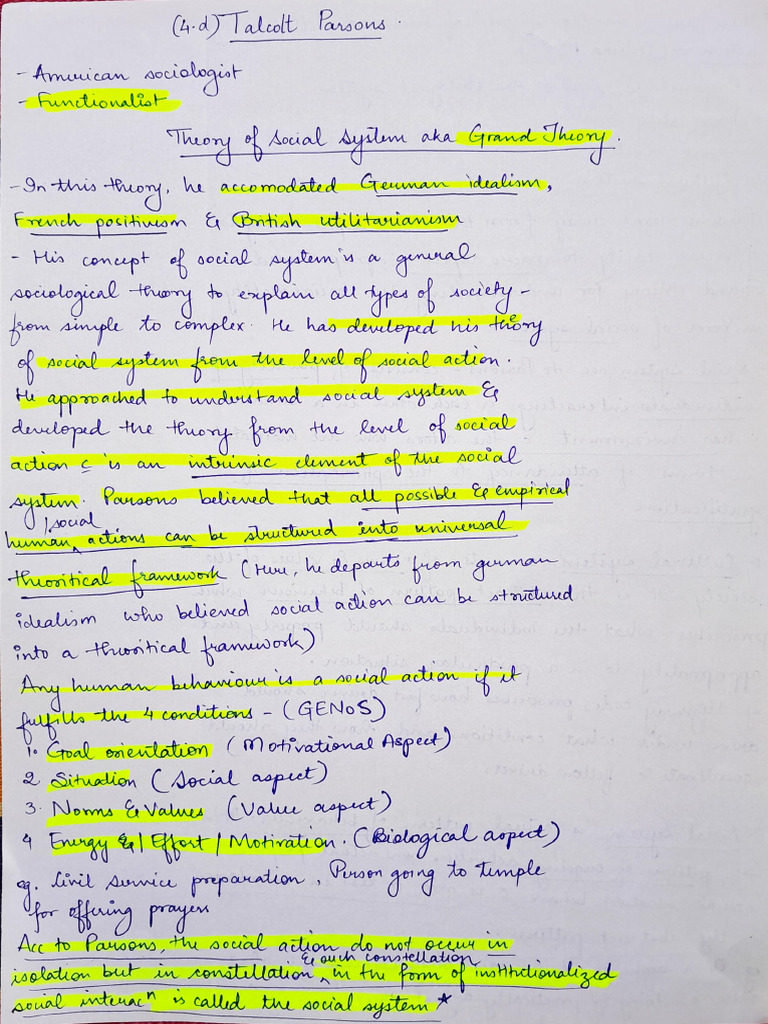 (4.d) Talcott Parsons.
- American sociologist
- Functionalist
Theory of social system aka Grand Theory.
- In this theory, he accomodated German idealism,
French positivism & British utilitarianism
- His concept of social system is a general
sociological theory to explain all types of society -
from simple to complex. He has developed his theory
of social system from the level of social action.
He approached to understand social system &
developed the theory from the level of social
action c is an intrinsic element of the social
system. Parsons believed that all possible & empirical
human social actions can be structured into universal
theoritical framework (Here, he departs from german
idealism who believed social action can be structured
into a theoritical framework)
Any human behaviour is a social action if it
fulfills the 4 conditions - (GENoS)
1. Goal orientation (Motivational Aspect)
2 Situation (Social aspect)
3. Norms & Values (Value aspect)
4 Energy &/ Effort / Motivation. (Biological aspect)
eg. Civil service preparation, Person going to temple
for offering prayers
Acc to Parsons, the social action do not occur in
isolation but in constellation & such constellation in the form of institutionalized
social interacn is called the social system *